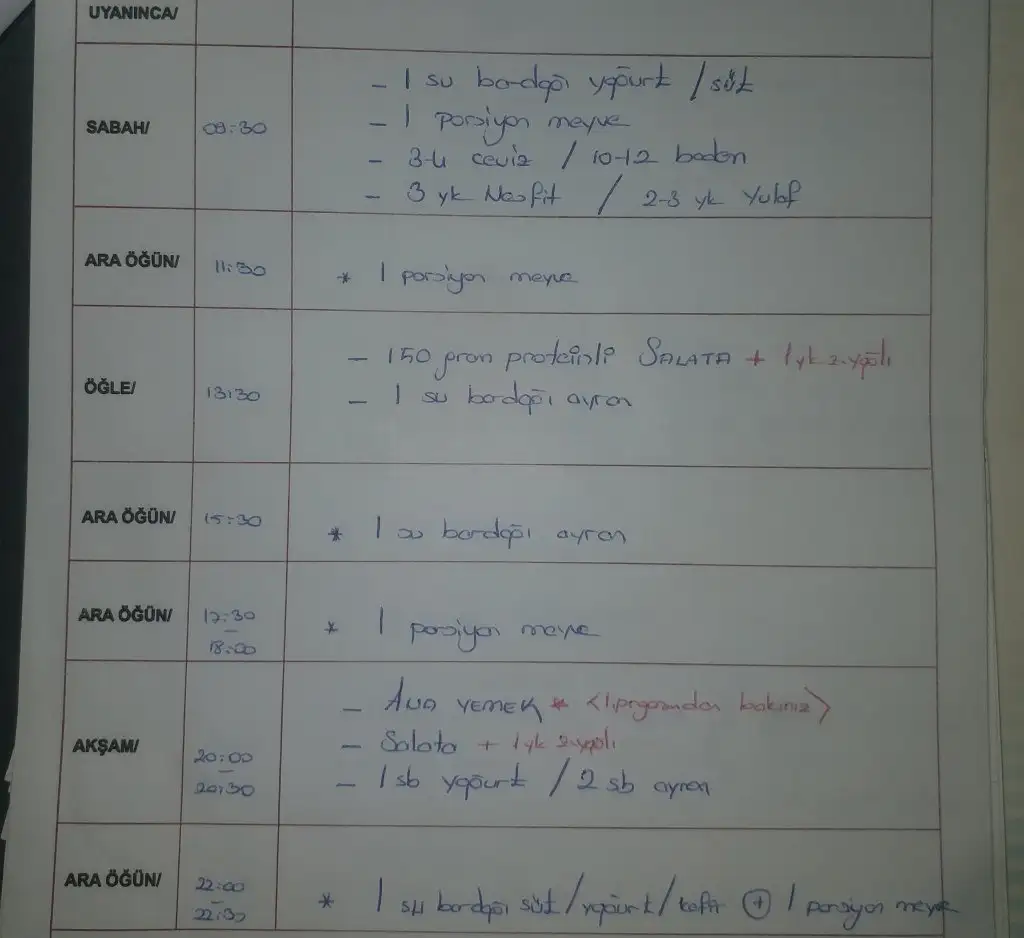 UYANINCA/
SABAH/
09:30
- 1 su bardağı yoğurt / süt
- 1 porsiyon meyve
- 3-4 ceviz / 10-12 badem
- 3 yk Nesfit / 2-3 yk Yulaf
ARA ÖĞÜN/
11:30
* 1 porsiyon meyve
ÖĞLE/
13:30
- 150 gram proteinli SALATA + 1 yk z.yağlı
- 1 su bardağı ayran
ARA ÖĞÜN/
15:30
* 1 su bardağı ayran
ARA ÖĞÜN/
17:30
-
18:00
* 1 porsiyon meyve
AKŞAM/
20:00
-
20:30
- ANA YEMEK * <1.programdan bakınız>
- Salata + 1 yk z.yağlı
- 1 sb yoğurt / 2 sb ayran
ARA ÖĞÜN/
22:00
-
22:30
* 1 su bardağı süt/yoğurt/kefir + 1 porsiyon meyve